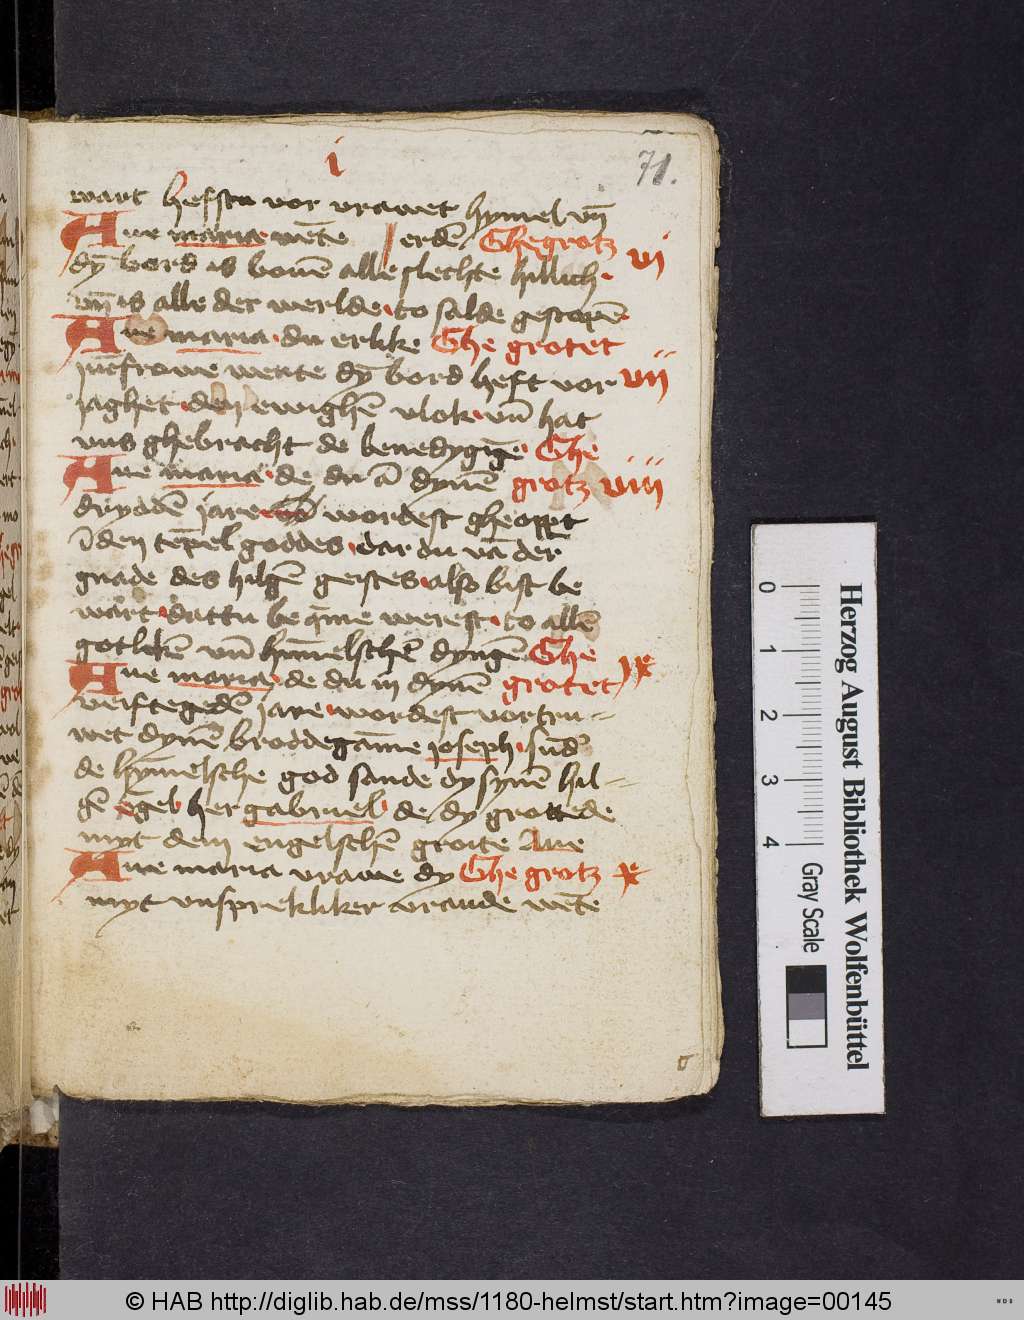 i
71.
wart hefstu vor vrawet hymel vn̄
Aue maria wēte erdē Ghegrotz vi
dȳ bord is bouē alle slechte hillich.
vn̄ is alle der werlde to salde gescapē
Aue maria du erlike Ghe grotet
iūcfrowe wente dȳ bord heft vor vii
iaghet den ewighē vlok vn̄ hat
vns ghebracht de benedygīge Ghe
Aue maria de du ī dynē grotz viii
drydde iare wordest gheoppt
ī den tēpel goddes dar du vā der
gnade des hilgē geistes also bist be
wart dattu beq̄me werest to allē
gotlikē vn̄ hīmelschē dyngē Ghe
Aue maria de du in dynē grotet ix
veiftegedē iare wordest vortru=
wet dynē broddegāme ioseph sūd
de hȳmelsche god sande dy synē hil=
gē ēgel her gabriuel de dy grottede
myt dem engelschē groite Aue
Aue maria vrawe dy Ghe grotz x
myt vnsprekliker vraude wēte
Herzog August Bibliothek Wolfenbüttel
0 1 2 3 4
Gray Scale
© HAB http://diglib.hab.de/mss/1180-helmst/start.htm?image=00145